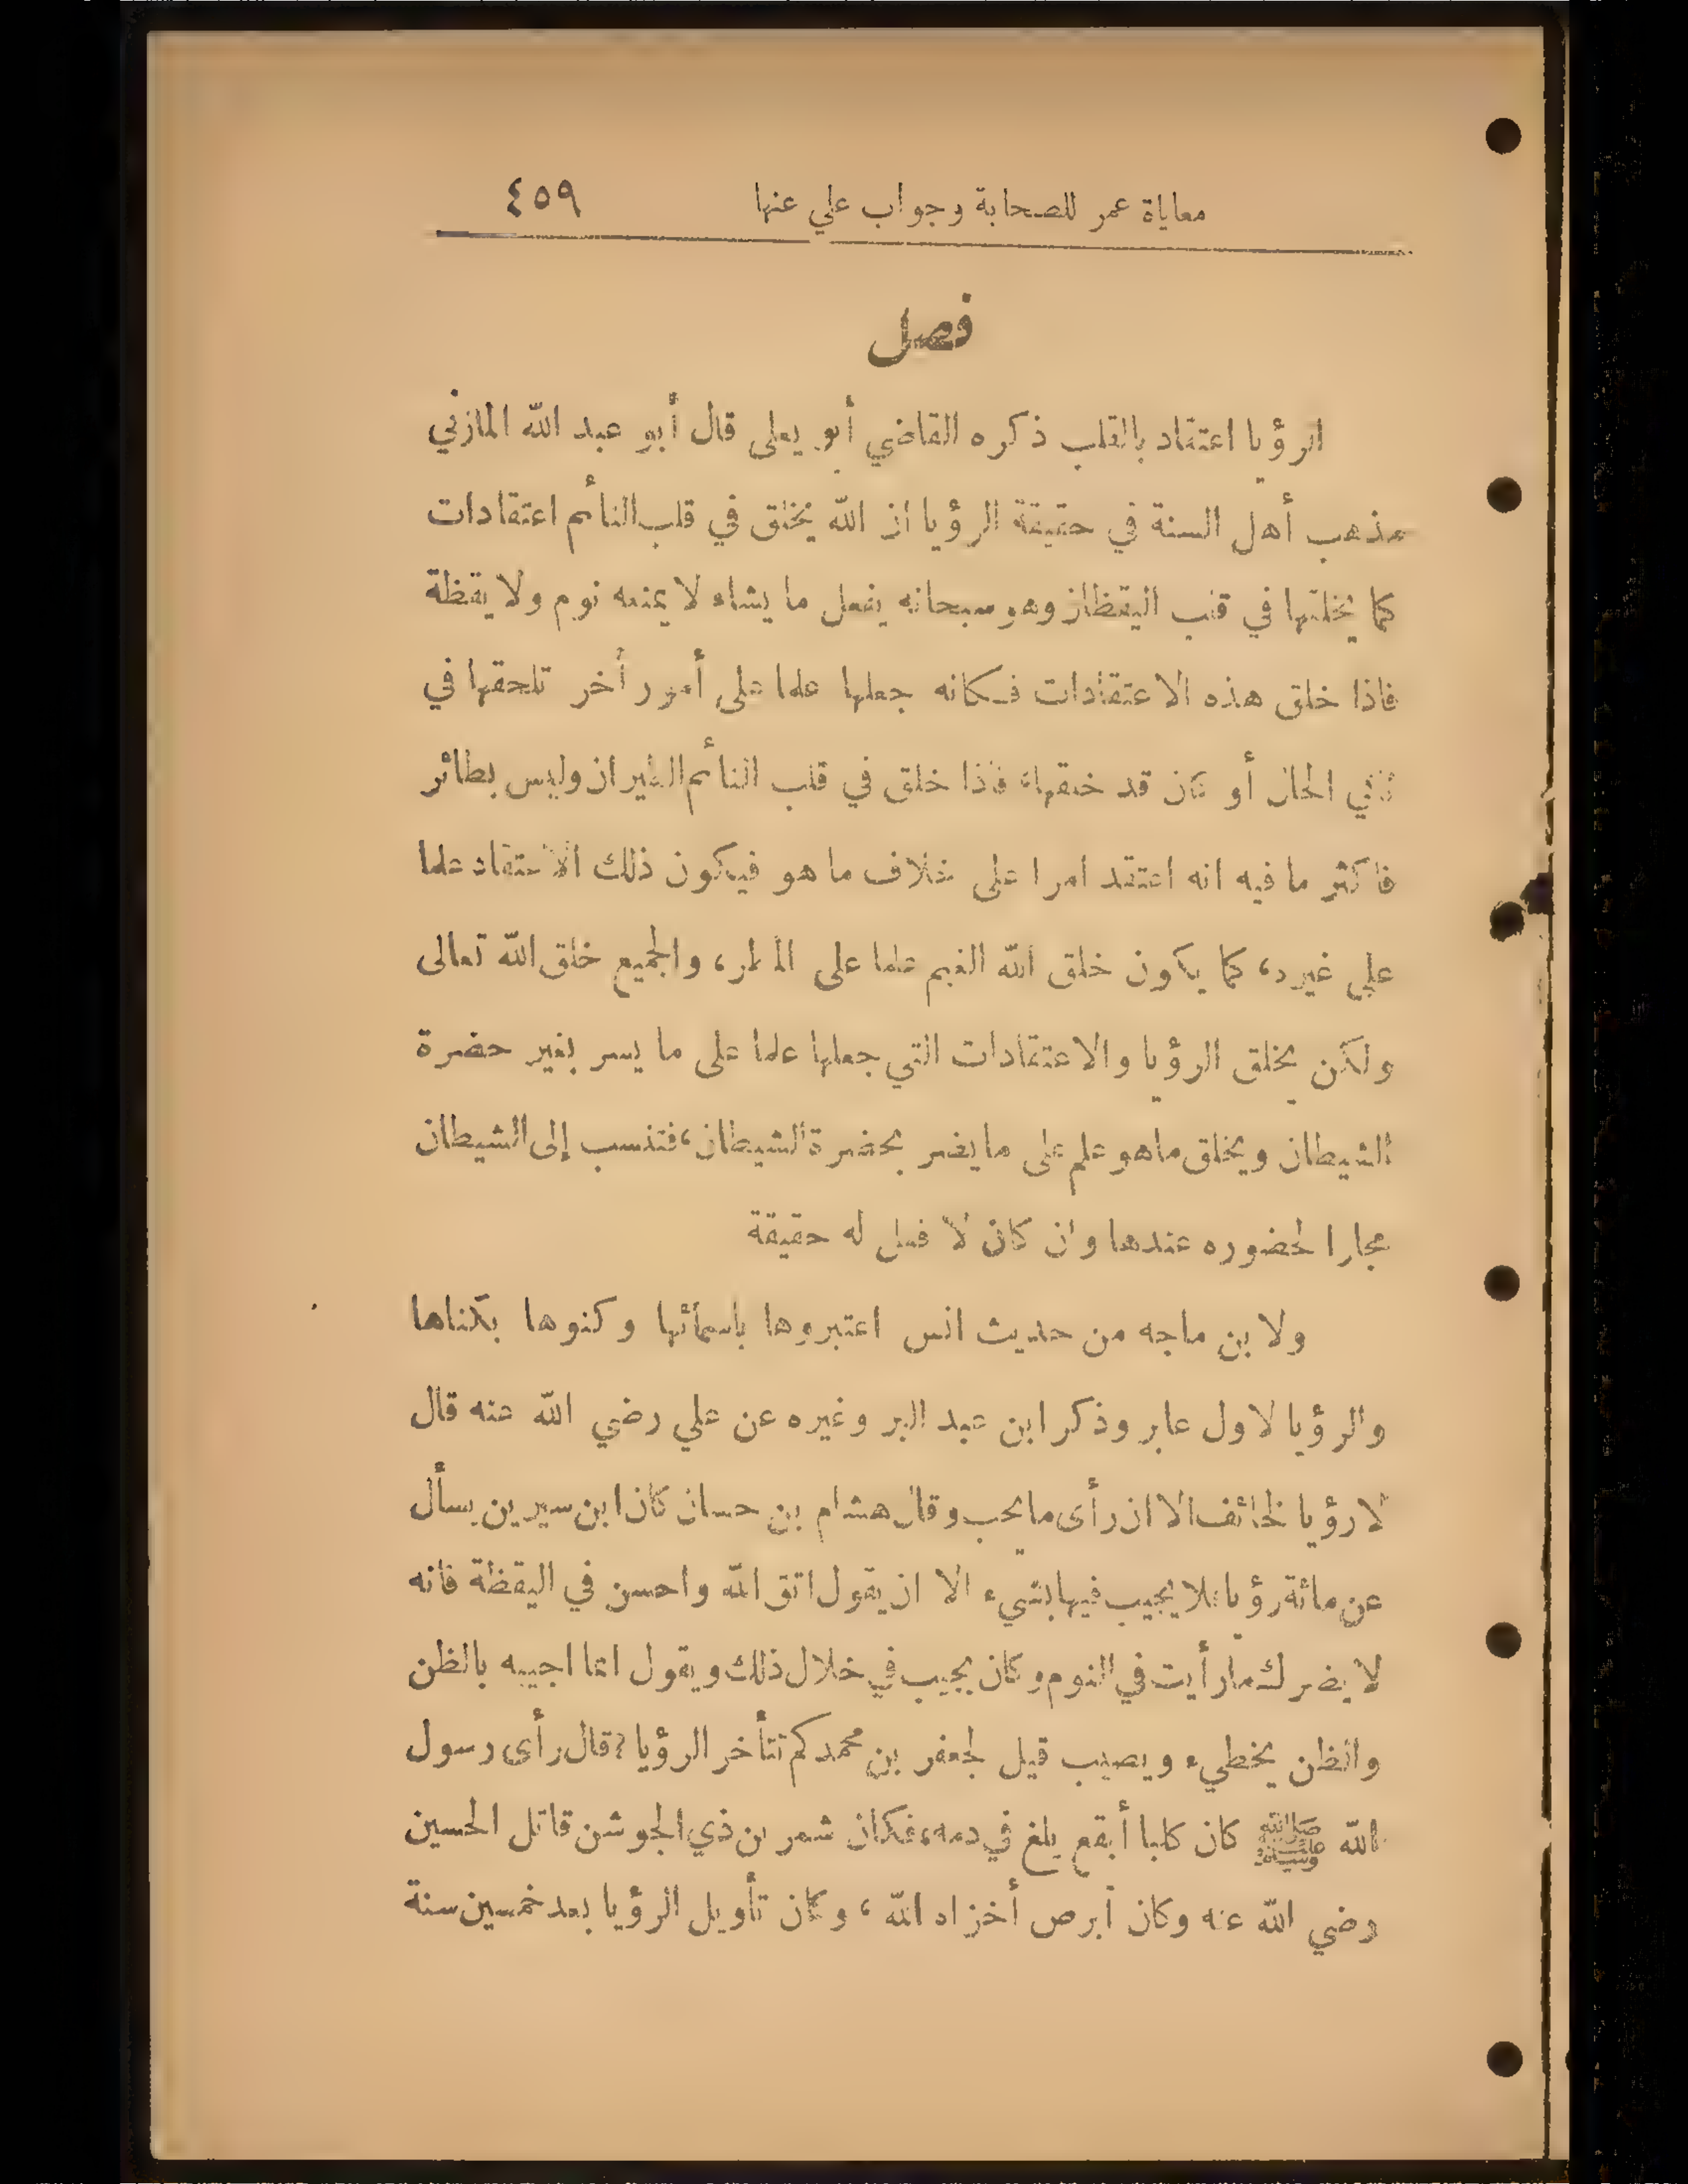 معاياة عمر للصحابة وجواب علي عنها ٤٥٩
فصل
الرؤيا اعتقاد بالقلب ذكره القاضي أبو يعلى قال أبو عبد الله المازني
مذهب أهل السنة في حقيقة الرؤيا ان الله يخلق في قلب النائم اعتقادات
كما يخلقها في قلب اليقظان وهو سبحانه يفعل ما يشاء لا يمنعه نوم ولا يقظة
فاذا خلق هذه الاعتقادات فكانه جعلها علما على أمور أخر تلحقها في
ثاني الحال أو كان قد خلقها، فاذا خلق في قلب النائم الطيران وليس بطائر
فاكثر ما فيه انه اعتقد امرا على خلاف ما هو فيكون ذلك الاعتقاد علما
على غيره، كما يكون خلق الله الغيم علما على المطر، والجميع خلق الله تعالى
ولكن يخلق الرؤيا والاعتقادات التي جعلها علما على ما يسر بغير حضرة
الشيطان ويخلق ما هو علم على ما يضر بحضرة الشيطان، فتنسب إلى الشيطان
مجازا لحضوره عندها وان كان لا فعل له حقيقة
ولابن ماجه من حديث انس اعتبروها باسمائها وكنوها بكناها
والرؤيا لاول عابر وذكر ابن عبد البر وغيره عن علي رضي الله عنه قال
لا رؤيا لخائف الا ان رأى ما يحب وقال هشام بن حسان كان ابن سيرين يسأل
عن مائة رؤيا فلا يجيب فيها بشيء الا ان يقول اتق الله واحسن في اليقظة فانه
لا يضرك ما رأيت في النوم وكان يجيب في خلال ذلك ويقول انما اجيبه بالظن
والظن يخطيء ويصيب قيل لجعفر بن محمد كم تتأخر الرؤيا؟ قال رأى رسول
الله ﷺ كان كلبا أبقع يلغ في دمه، فكان شمر بن ذي الجوشن قاتل الحسين
رضي الله عنه وكان أبرص أخزاه الله ، وكان تأويل الرؤيا بعد خمسين سنة